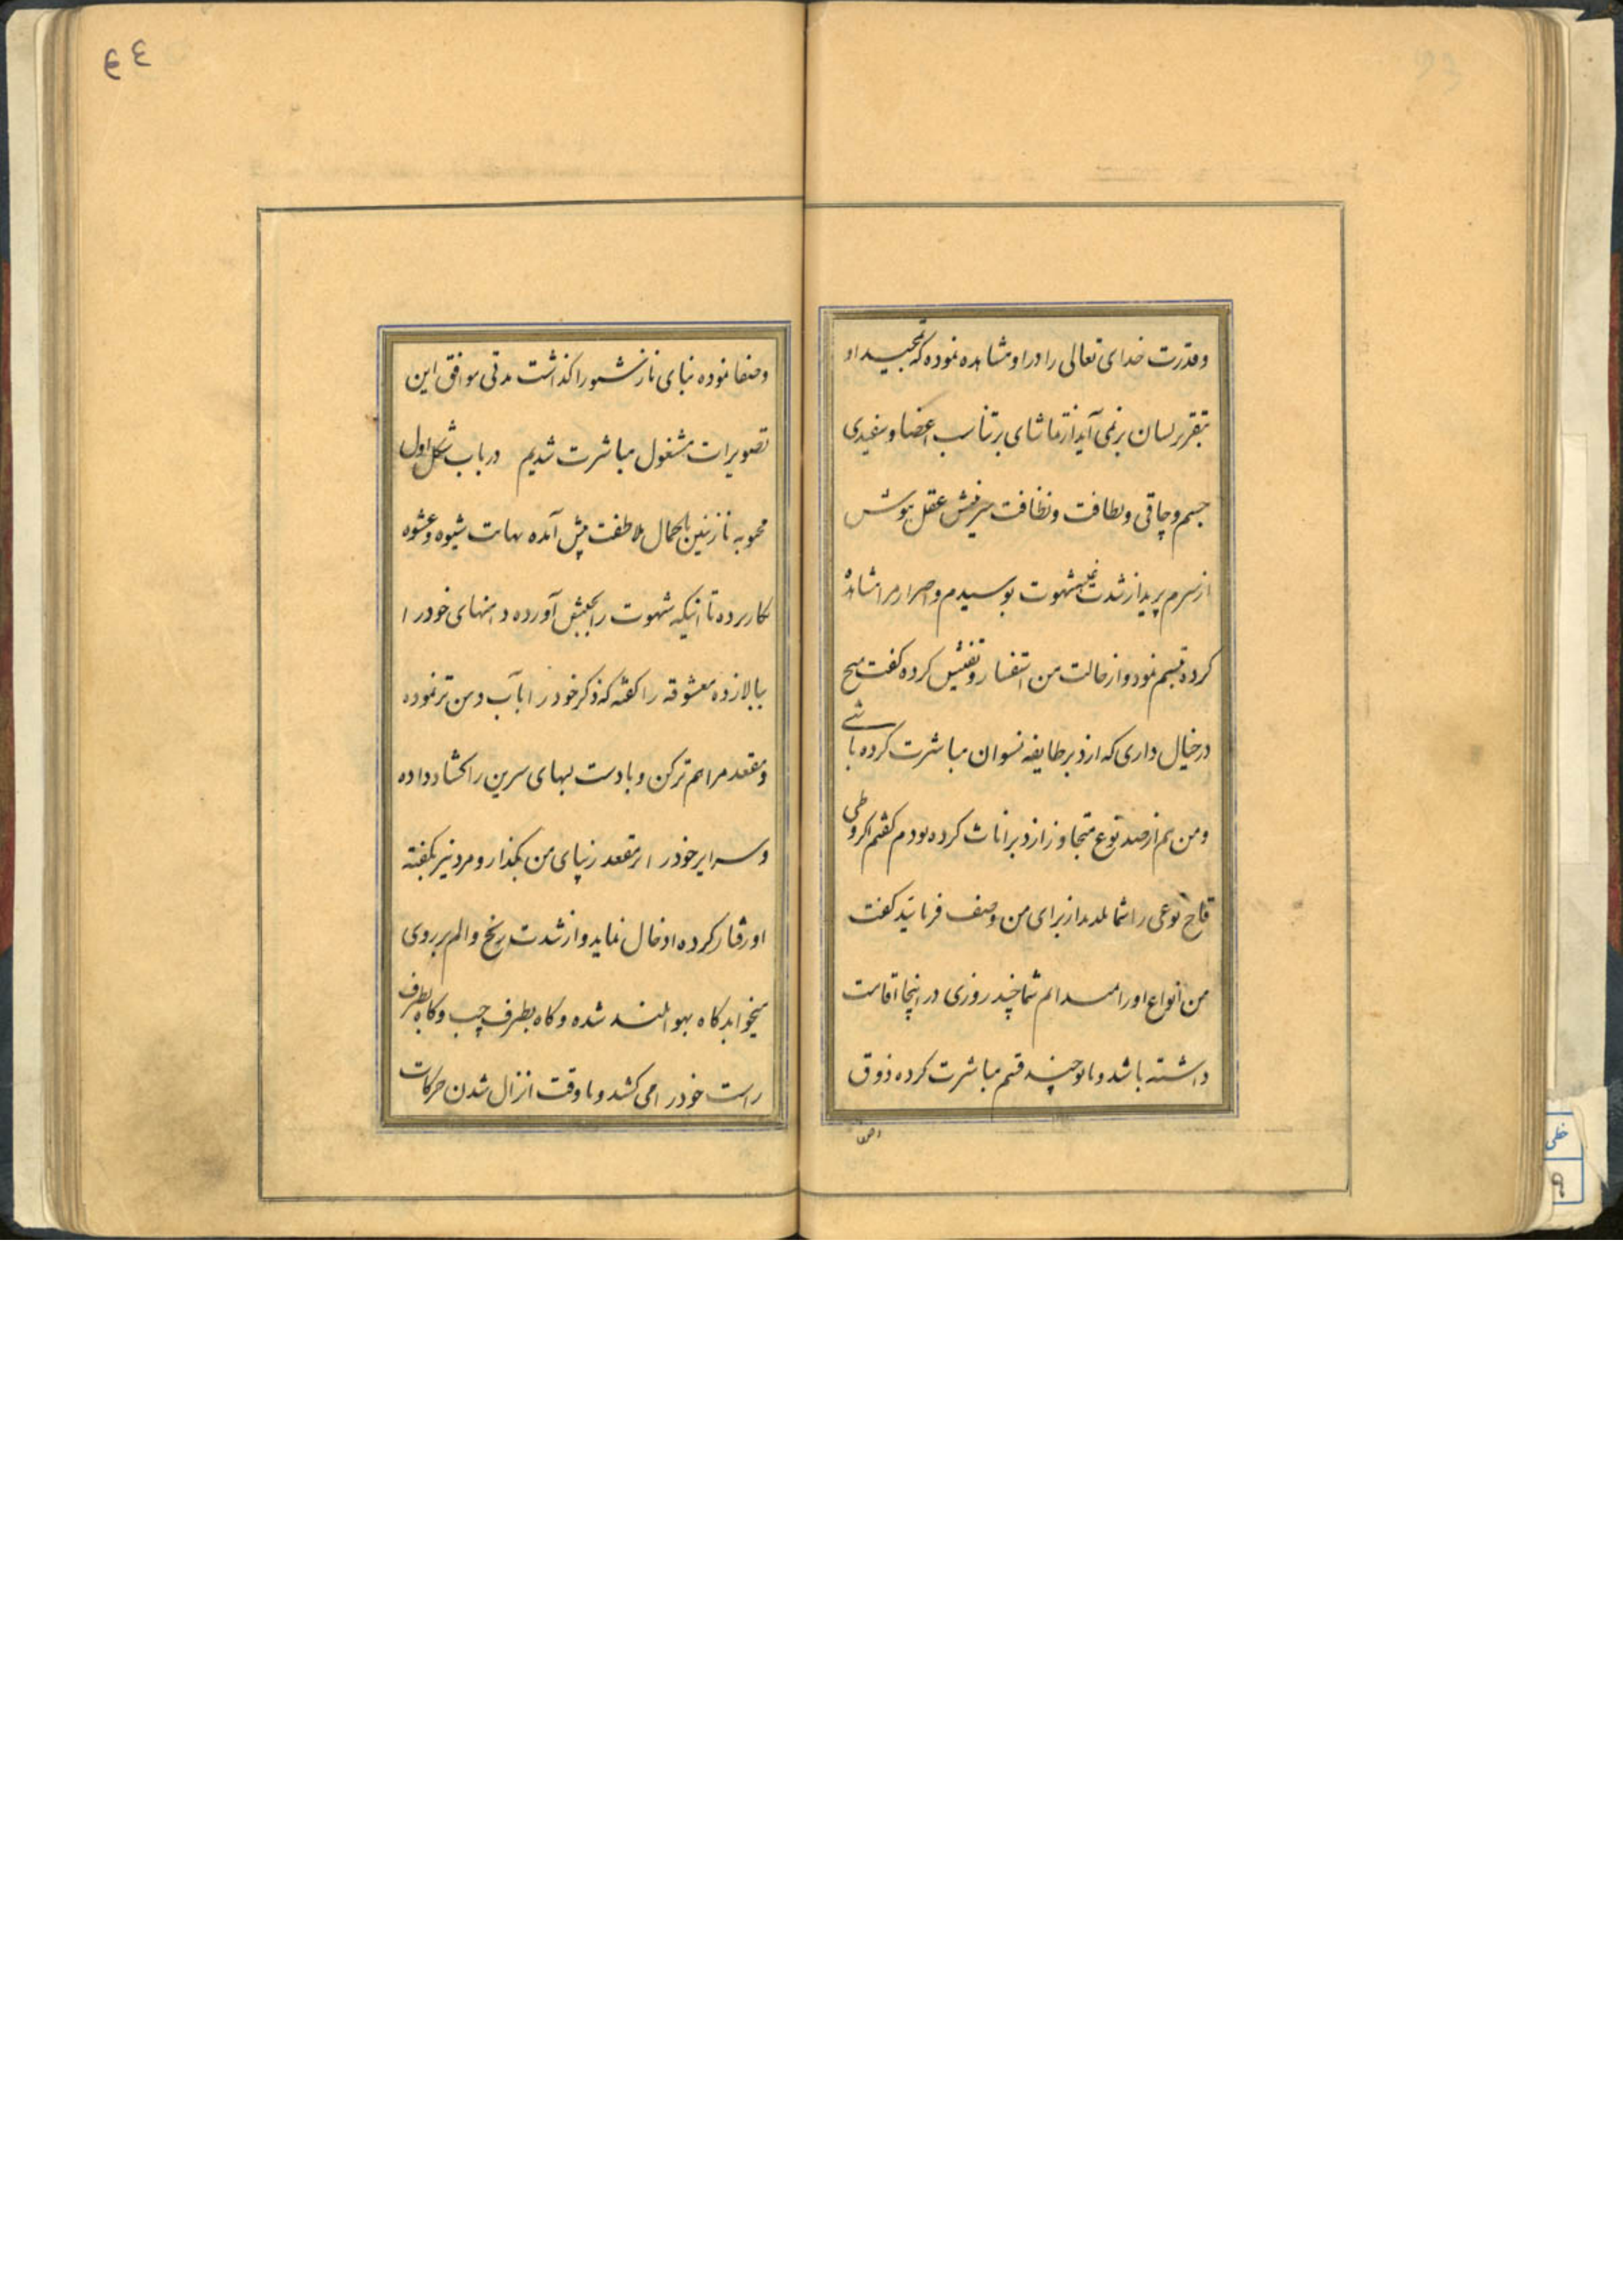 وقدرت خدای تعالی را در او مشاهده نموده که تمجید او
بتقریر لسان برنمی آید از تماشای بر تناسب اعضا و سفیدی
جسم و چاقی و لطافت و نظافت عقل هوش
از سرم پرید از شدت غلبه شهوت بوسیدم و اصرار مرا مشاهده
کرده تبسم نمود و از حالت من استفسار و تفتیش کرده کفت هیچ
در خیال داری که از دبر طایفه نسوان مباشرت کرده باشی
و من هم از صد نوع متجاوز از دبر اناث کرده بودم کفتم اکر وطی
نوعی را شما بلدید از برای من وصف فرمائید کفت
من انواع او را میدانم شما چند روزی در اینجا اقامت
داشته باشد و با تو چند قسم مباشرت کرده ذوق
وصفا
وصفا نموده بنای ناز را کذاشت مدتی موافق این
تصویرات مشغول مباشرت شدیم در باب شکل اول
محبوبه نازنین بکمال ملاطفت پیش آمده نهایت شیوه و عشوه
بکار برده تا اینکه شهوت را بجنبش آورده دامنهای خود را
ببالا زده معشوقه را کفته که ذکر خود را بآب دهن تر نموده
و مقعد مرا هم تر کن و با دست لبهای سرین را کشاد داده
و سر ایر خود را بر مقعد زیبای من بگذار و مرد نیز بگفته
او رفتار کرده ادخال نماید و از شدت رنج و الم بر روی
میخوابد کاه بهوا بلند شده و کاه بطرف چپ و کاه بطرف
راست خود را می کشد و تا وقت انزال شدن حرکات
٣٤
خطی
٩